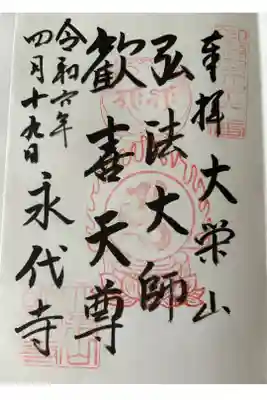 奉拝 大栄山
弘法大師
歓喜天尊
永代寺
令和六年
四月十九日